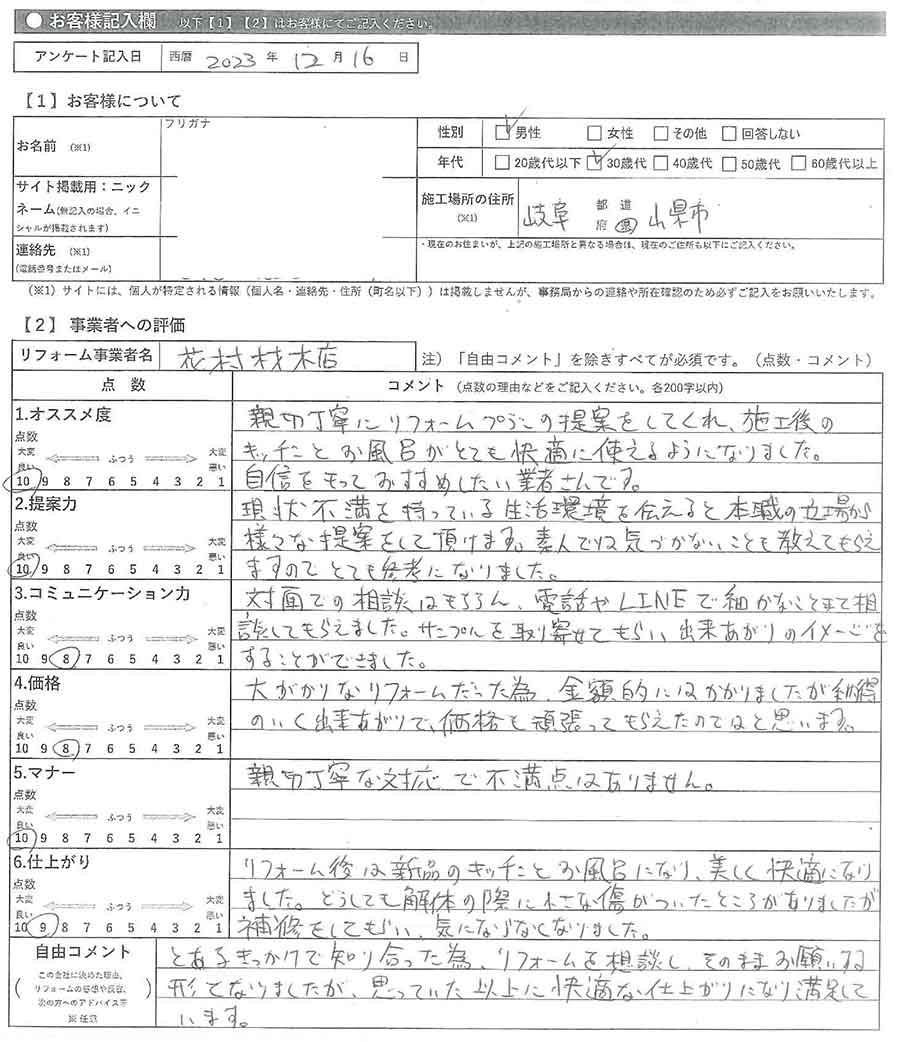 ● お客様記入欄 以下【1】【2】はお客様にてご記入ください。
アンケート記入日 西暦 2023 年 12 月 16 日
【1】お客様について
お名前 (※1) フリガナ
性別 □男性 □女性 □その他 □回答しない
年代 □20歳代以下 □30歳代 □40歳代 □50歳代 □60歳代以上
サイト掲載用：ニックネーム(無記入の場合、イニシャルが掲載されます)
施工場所の住所 (※1) 岐阜 都 道 府 県 山県市
・現在のお住まいが、上記の施工場所と異なる場合は、現在のご住所も以下にご記入ください。
連絡先 (※1)
(電話番号またはメール)
(※1) サイトには、個人が特定される情報（個人名・連絡先・住所（町名以下））は掲載しませんが、事務局からの連絡や所在確認のため必ずご記入をお願いいたします。
【2】事業者への評価
リフォーム事業者名 花村材木店 注）「自由コメント」を除きすべてが必須です。（点数・コメント）
点 数 コメント（点数の理由などをご記入ください。各200字以内）
1.オススメ度
点数
大変良い ふつう 大変悪い
10 9 8 7 6 5 4 3 2 1
親切丁寧にリフォームプランの提案をしてくれ、施工後の
キッチンとお風呂がとても快適に使えるようになりました。
自信をもっておすすめしたい業者さんです。
2.提案力
点数
大変良い ふつう 大変悪い
10 9 8 7 6 5 4 3 2 1
現状不満を持っている生活環境を伝えると本職の立場から
様々な提案をして頂けます。素人では気づかないことも教えてもらえ
ますのでとても参考になりました。
3.コミュニケーション力
点数
大変良い ふつう 大変悪い
10 9 8 7 6 5 4 3 2 1
対面での相談はもちろん、電話やLINEで細かなことまで相
談してもらえました。サンプルを取り寄せてもらい、出来あがりのイメージを
することができました。
4.価格
点数
大変良い ふつう 大変悪い
10 9 8 7 6 5 4 3 2 1
大がかりなリフォームだった為、金額的にはかかりましたが納得
のいく出来あがりで、価格も頑張ってもらえたのではと思います。
5.マナー
点数
大変良い ふつう 大変悪い
10 9 8 7 6 5 4 3 2 1
親切丁寧な対応で不満点はありません。
6.仕上がり
点数
大変良い ふつう 大変悪い
10 9 8 7 6 5 4 3 2 1
リフォーム後は新品のキッチンとお風呂になり、美しく快適になり
ました。どうしても解体の際に小さな傷がついたところがありましたが
補修をしてもらい、気にならなくなりました。
自由コメント
（この会社に決めた理由、リフォームの感想や反省、次の方へのアドバイス等）
※任意
とあるきっかけで知り合った為、リフォームを相談し、そのままお願いする
形となりましたが、思っていた以上に快適な仕上がりになり満足して
います。